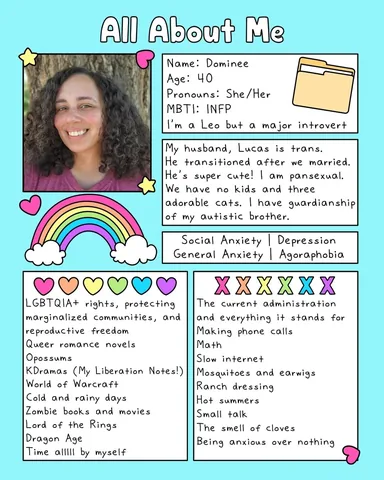 All About Me
Name: Dominee
Age: 40
Pronouns: She/Her
MBTI: INFP
I'm a Leo but a major introvert
My husband, Lucas is trans.
He transitioned after we married.
He's super cute! I am pansexual.
We have no kids and three
adorable cats. I have guardianship
of my autistic brother.
Social Anxiety | Depression
General Anxiety | Agoraphobia
LGBTQIA+ rights, protecting
marginalized communities, and
reproductive freedom
Queer romance novels
Opossums
KDramas (My Liberation Notes!)
World of Warcraft
Cold and rainy days
Zombie books and movies
Lord of the Rings
Dragon Age
Time alllll by myself
X X X X X X
The current administration
and everything it stands for
Making phone calls
Math
Slow internet
Mosquitoes and earwigs
Ranch dressing
Hot summers
Small talk
The smell of cloves
Being anxious over nothing